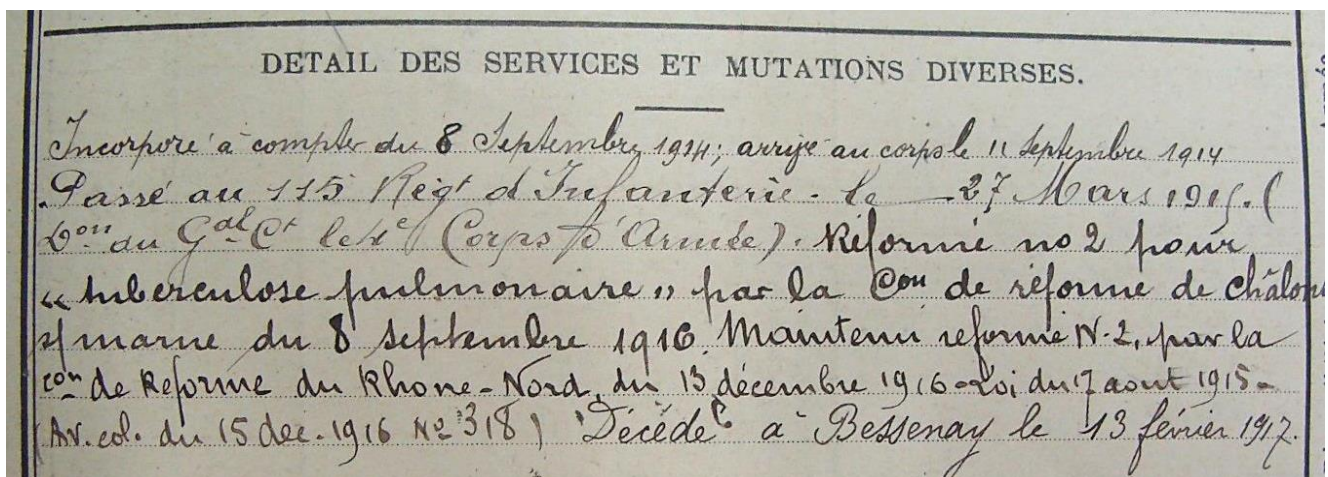 DETAIL DES SERVICES ET MUTATIONS DIVERSES.
Incorporé à compter du 8 Septembre 1914; arrivé au corps le 11 Septembre 1914
Passé au 115 Régt d'Infanterie. le 27 Mars 1915. (
Don du Gal Ct le 4e Corps d'Armée). Réformé no 2 pour
« tuberculose pulmonaire » par la Con de réforme de Châlons
s/ marne du 8 septembre 1916. Maintenu reformé N-2, par la
con de Réforme du Rhone-Nord, du 13 décembre 1916-Loi du 17 aout 1915-
(Av. col. du 15 dec. 1916 No 318) Décédé à Bessenay le 13 février 1917.